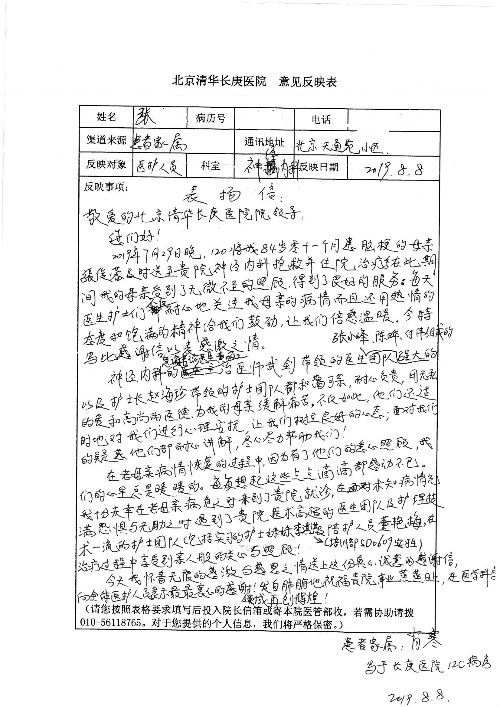 北京清华长庚医院 意见反映表
姓名 张 病历号 电话
渠道来源 患者家属 通讯地址 北京天通苑小区
反映对象 医护人员 科室 神经内科 反映日期 2019.8.8
反映事项:
表扬信:
敬爱的北京清华长庚医院院领导:
您们好!
2019年7月29日晚,120将我84岁零十一个月患脑梗的母亲
及时送至贵院神经内科抢救并住院,治疗在此期
间我的母亲受到了无微不至的照顾,得到了良好的服务。每天
医生护士们耐心地关注我母亲的病情而且还用热情的
态度和饱满的精神给我们鼓励,让我们倍感温暖。今特
写此感谢信以表感激之情。
神经内科的 治医师武剑带领的医生团队
以及护士长赵海玲带领的护士团队都和蔼可亲,耐心负责,用无私
的爱和高尚的医德为我的母亲缓解痛苦,不仅如此,他们还适
时地对我们进行心理安抚,让我们树立良好的心态;面对我们
的疑惑他们都耐心讲解,尽心尽力帮助我们!
在老母亲病情恢复的过程中,因为有了他们的悉心照顾,我
们的心里总是暖暖的。每每想起这些点点滴滴都感动不已。
我十分庆幸在老母亲病危之时来到了贵院就诊,在面对未知病情充
满恐惧与无助之时遇到了贵院医术高超的医生团队及护理技
术一流的护士团队 陪护人员董艳梅,在
治疗过程中享受到亲人般的关心与照顾!
今天我怀着无限的感激与感恩之情送上这份真心诚意的感谢信,
向全体医护人员表示最衷心的感谢!发自肺腑地祝福贵院事业蒸蒸日上,在医学科学
领域再创辉煌!
(请您按照表格要求填写后投入院长信箱或寄本院医管部收,若需协助请拨
010-56118765。对于您提供的个人信息,我们将严格保密。)
患者家属:
写于长庚医院12C病房
2019.8.8.